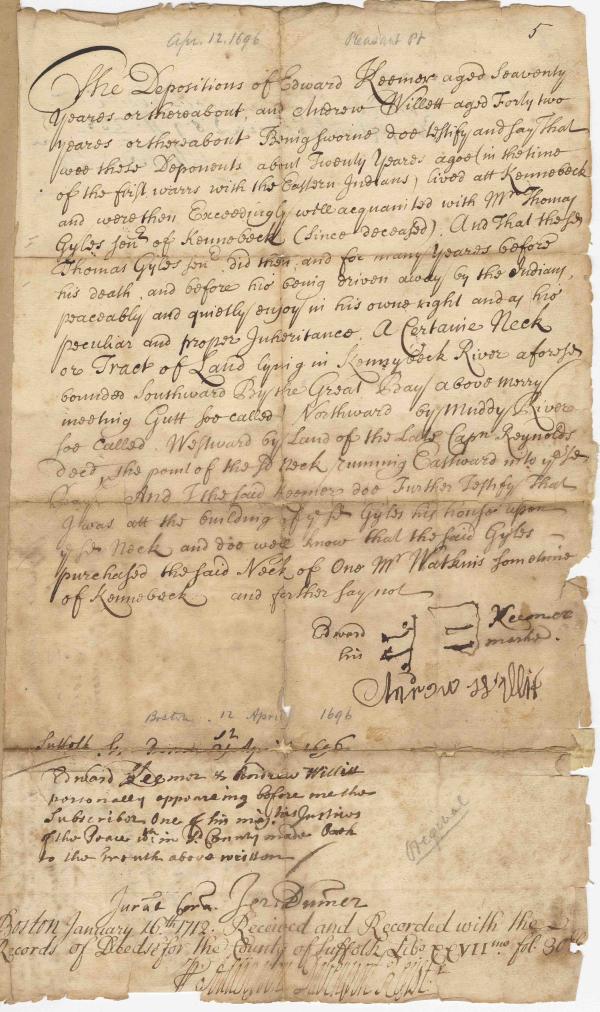 Apr. 12. 1696 Pleasant Pt 5
The Depositions of Edward Keemer aged Seaventy
Yeares or thereabout, and Andrew Willett aged Forty two
yeares or thereabout Being sworne doe testify and say That
wee these Deponents about Twenty Yeares agoe (in the time
of the first warrs with the Eastern Indians) lived att Kennebeck
and were then Exceedingly well acquanited with Mr Thomas
Gyles senr of Kennebeck (since deceased). And That the sd
Thomas Gyles senr did then, and for many Yeares before
his death, and before his being driven away by the Indians,
peaceably and quietly enjoy in his owne right and as his
peculiar and proper Inheritance, A Certaine Neck
or Tract of Land lying in Kennybeck River aforesd
bounded Southward By the Great Bay above merry
meeting Gutt soe called Northward by Muddy River
soe called. Westward by Land of the Late Capn Reynolds
decd, the point of the sd Neck running Eastward into ye sd
Bay. And I the said Keemer doe Further Testify That
I was att the building of ye sd Gyles his house upon
ye sd Neck and doe well know that the said Gyles
purchased the said Neck of One Mr Watkins sometime
of Kennebeck and further say not
Edward Keemer
his marke.
Andrew Willit
Boston . 12 April 1696
Suffolk 12 April 1696
Edward Keemer & Andrew Willitt
personally appeareing before me the
Subscriber One of his majties Justices
of the Peace in sd County made Oath
to the truth above written
Original
Jurat Cora. Jer: Dumer
Boston January 16th 1712. Received and Recorded with the
Records of Deeds for the County of Suffolk Libo XXVIImo fol.